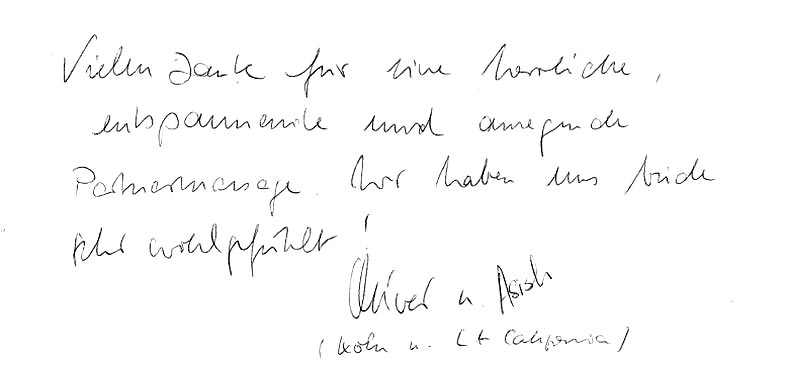 Vielen Dank für eine herrliche,
entspannende und anregende
Partnermassage. Wir haben uns beide
sehr wohlgefühlt!
Oliver u. Asish
(Köln u. California)